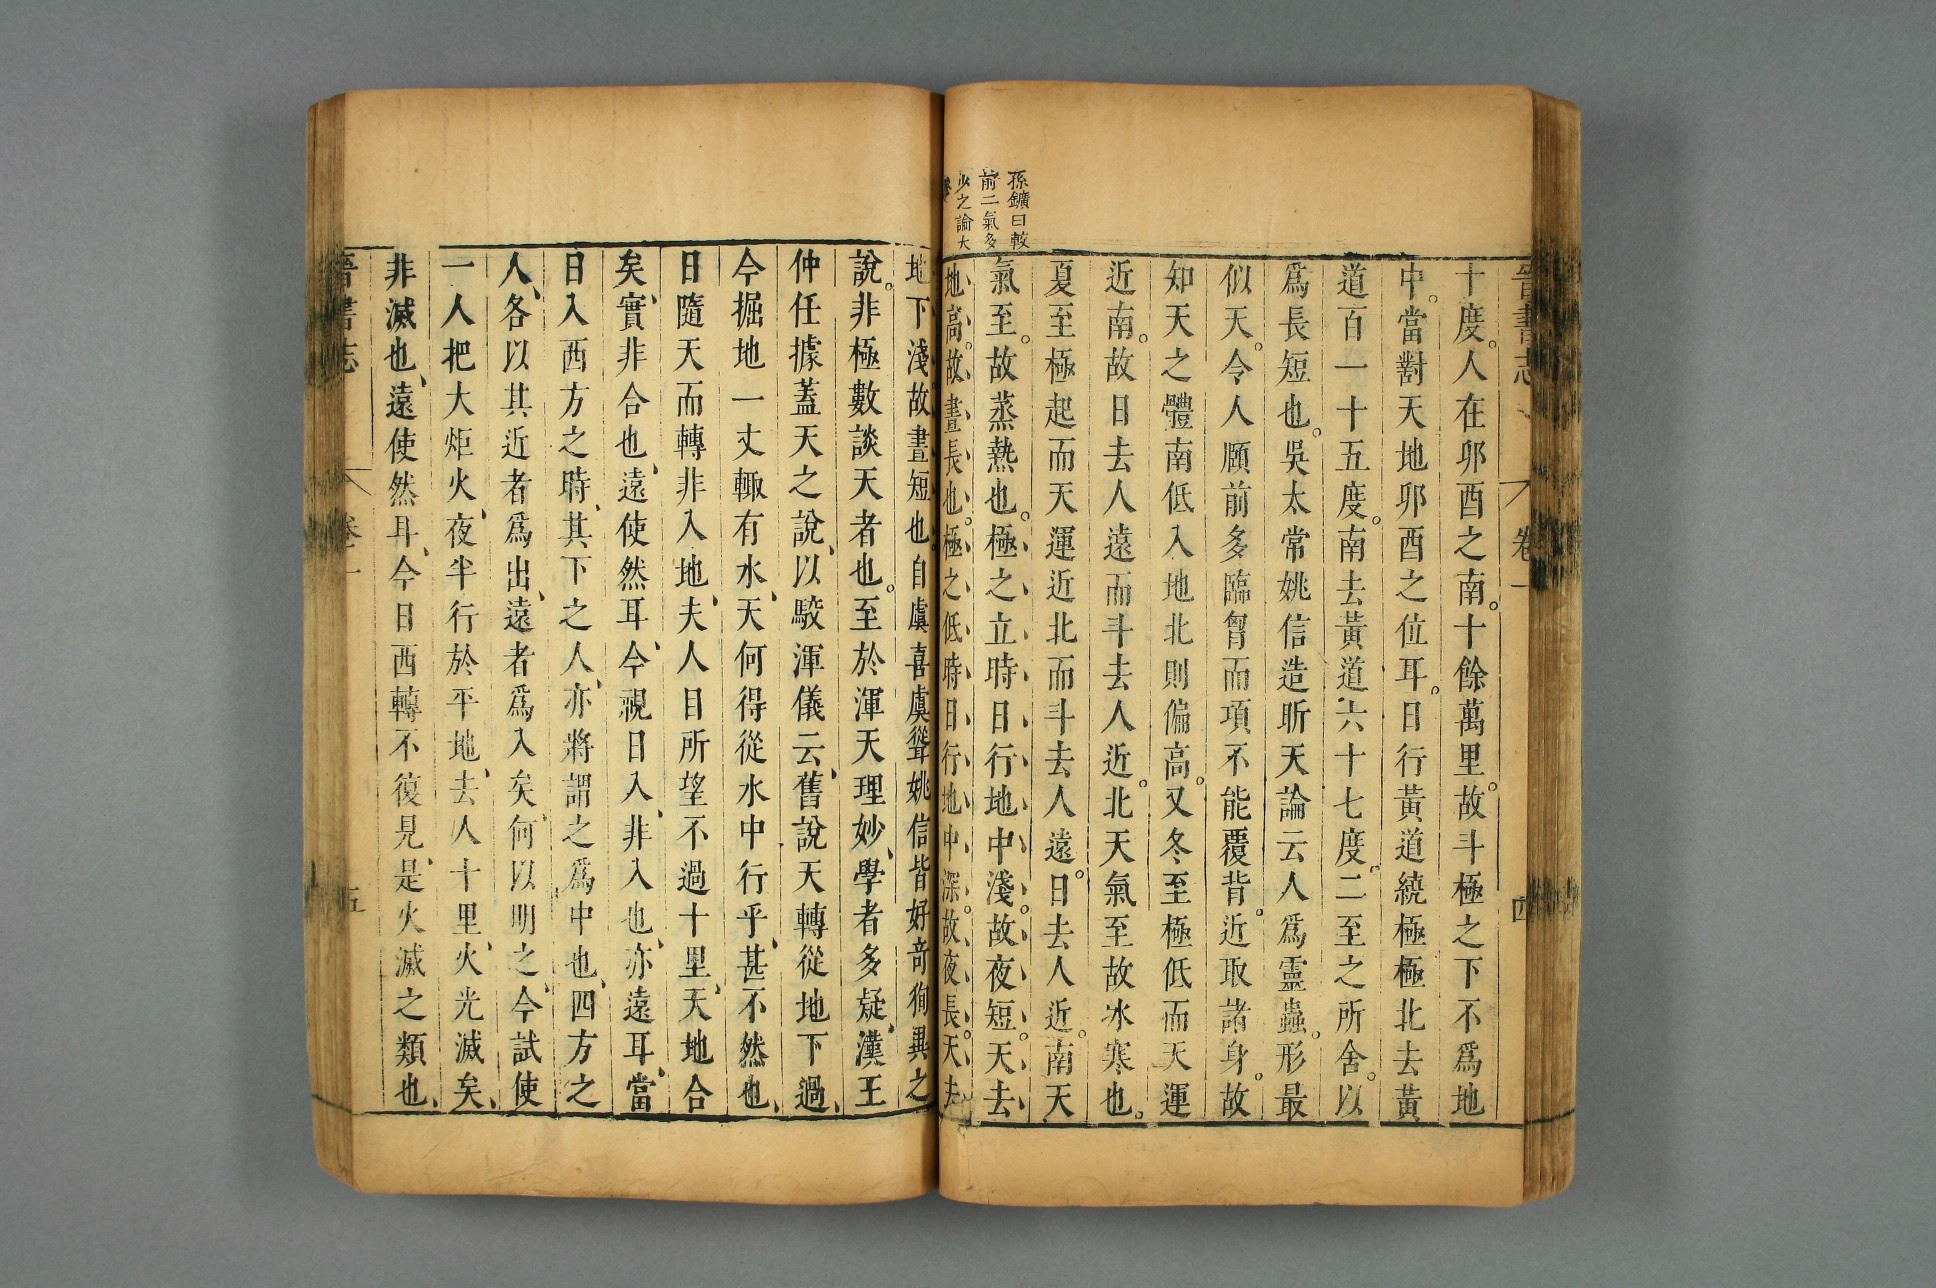 晉書志
卷一
四
孫鑛曰較
前二氣多
少之論大
十度。人在卯酉之南。十餘萬里。故斗極之下不爲地
中。當對天地卯酉之位耳。日行黃道繞極極北去黃
道百一十五度。南去黃道六十七度。二至之所舍。以
爲長短也。吳太常姚信造昕天論云人爲靈蟲。形最
似天。今人頤前多臨胷而項不能覆背。近取諸身。故
知天之體南低入地北則偏高。又冬至極低而天運
近南。故日去人遠而斗去人近。北天氣至故冰寒也。
夏至極起而天運近北而斗去人遠。日去人近。南天
氣至。故蒸熱也。極之立時日行地中淺。故夜短。天去
地高。故晝長也。極之低時日行地中深。故夜長。天去
地下淺故晝短也自虞喜虞聳姚信皆好奇徇異之
說。非極數談天者也。至於渾天理妙、學者多疑、漢王
仲任據蓋天之說、以駮渾儀云、舊說天轉從地下過、
今掘地一丈輙有水、天何得從水中行乎、甚不然也、
日隨天而轉非入地、夫人目所望不過十里、天地合
矣、實非合也、遠使然耳、今視日入、非入也、亦遠耳、當
日入西方之時、其下之人、亦將謂之爲中也、四方之
人、各以其近者爲出、遠者爲入矣、何以明之、今試使
一人把大炬火、夜半行於平地、去人十里、火光滅矣、
非滅也、遠使然耳、今日西轉不復見、是火滅之類也、
晉書志
卷一
五